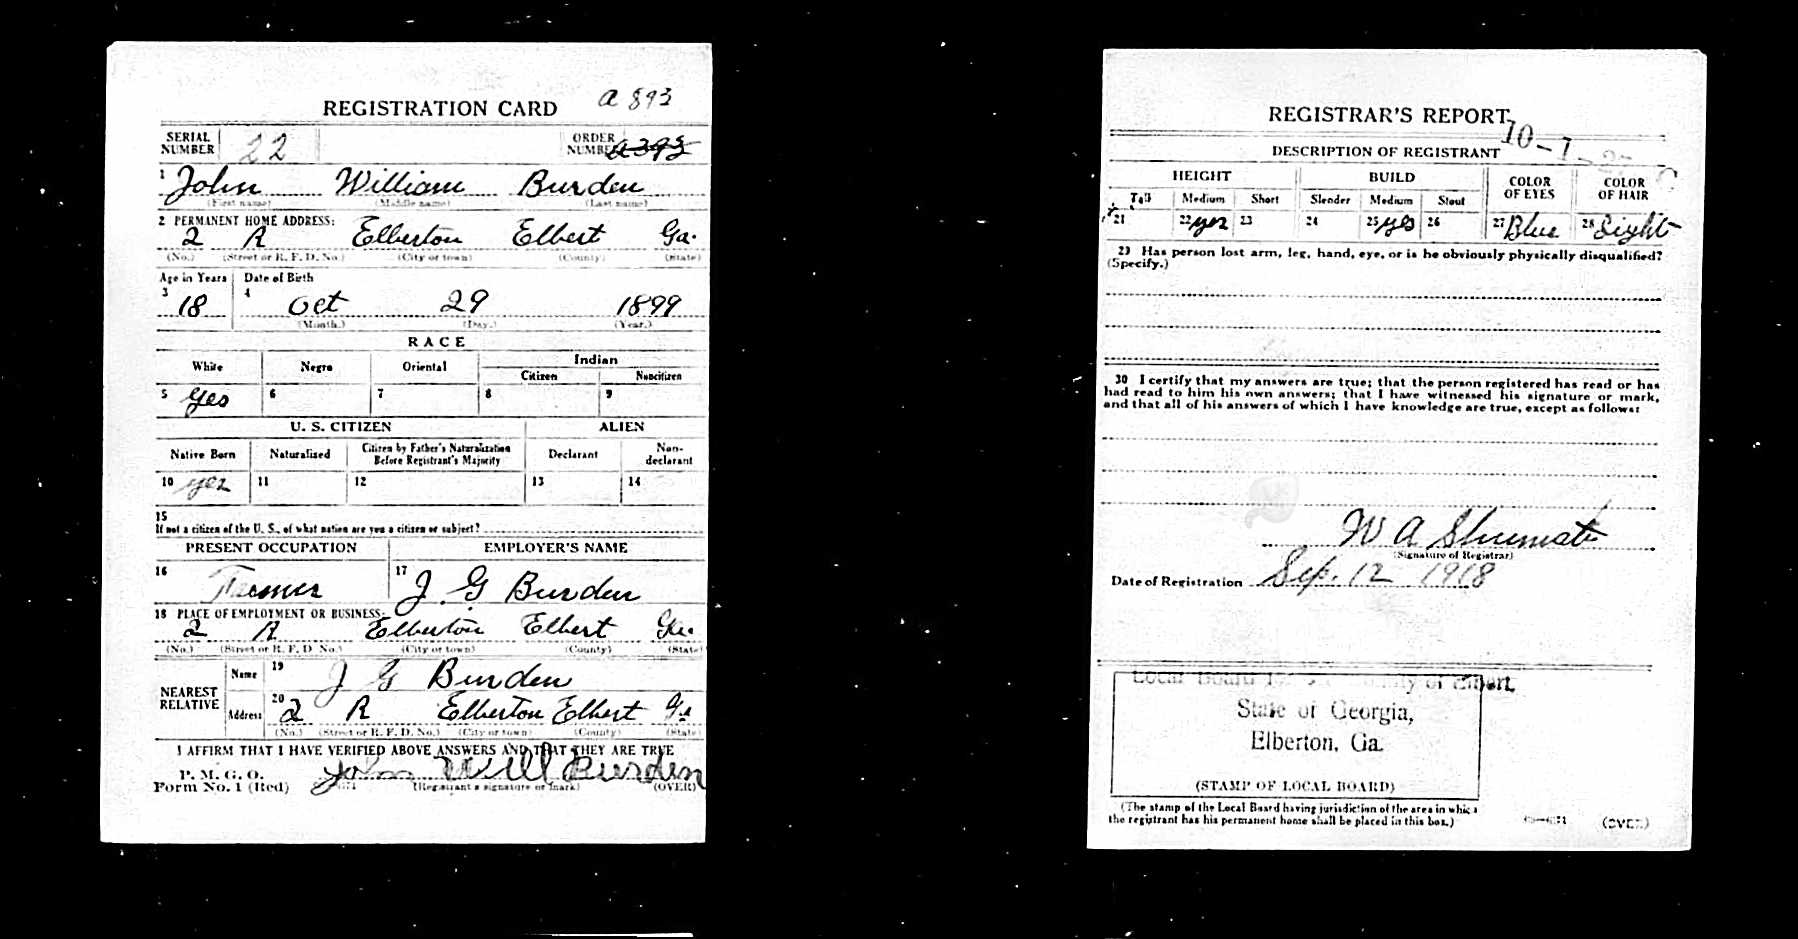 REGISTRATION CARD
a 893
SERIAL NUMBER 22 ORDER NUMBER a 393
1 John William Burden
(First name) (Middle name) (Last name)
2 PERMANENT HOME ADDRESS:
2 R Elberton Elbert Ga.
(No.) (Street or R. F. D. No.) (City or town) (County) (State)
Age in Years Date of Birth
3 18 4 Oct 29 1899
(Month.) (Day.) (Year.)
RACE
White Negro Oriental Indian
Citizen Noncitizen
5 Yes 6 7 8 9
U. S. CITIZEN ALIEN
Native Born Naturalized Citizen by Father's Naturalization Before Registrant's Majority Declarant Non-declarant
10 yes 11 12 13 14
15
If not a citizen of the U. S., of what nation are you a citizen or subject?
PRESENT OCCUPATION EMPLOYER'S NAME
16 Farmer 17 J G Burden
18 PLACE OF EMPLOYMENT OR BUSINESS:
2 R Elberton Elbert Ga.
(No.) (Street or R. F. D. No.) (City or town) (County) (State)
NEAREST RELATIVE
Name 19 J G Burden
Address 20 2 R Elberton Elbert Ga
(No.) (Street or R. F. D. No.) (City or town) (County) (State)
I AFFIRM THAT I HAVE VERIFIED ABOVE ANSWERS AND THAT THEY ARE TRUE
P. M. G. O.
Form No. 1 (Red) John Will Burden
(Registrant's signature or mark) (OVER)
REGISTRAR'S REPORT
10-1-
DESCRIPTION OF REGISTRANT
HEIGHT BUILD COLOR OF EYES COLOR OF HAIR
Tall Medium Short Slender Medium Stout
21 22 yes 23 24 25 yes 26 27 Blue 28 Light
29 Has person lost arm, leg, hand, eye, or is he obviously physically disqualified?
(Specify.)
30 I certify that my answers are true; that the person registered has read or has
had read to him his own answers; that I have witnessed his signature or mark,
and that all of his answers of which I have knowledge are true, except as follows:
W A Shumate
(Signature of Registrar)
Date of Registration Sep. 12 1918
Local Board for County of Elbert,
State of Georgia,
Elberton, Ga.
(STAMP OF LOCAL BOARD)
(The stamp of the Local Board having jurisdiction of the area in which
the registrant has his permanent home shall be placed in this box.)
(OVER)